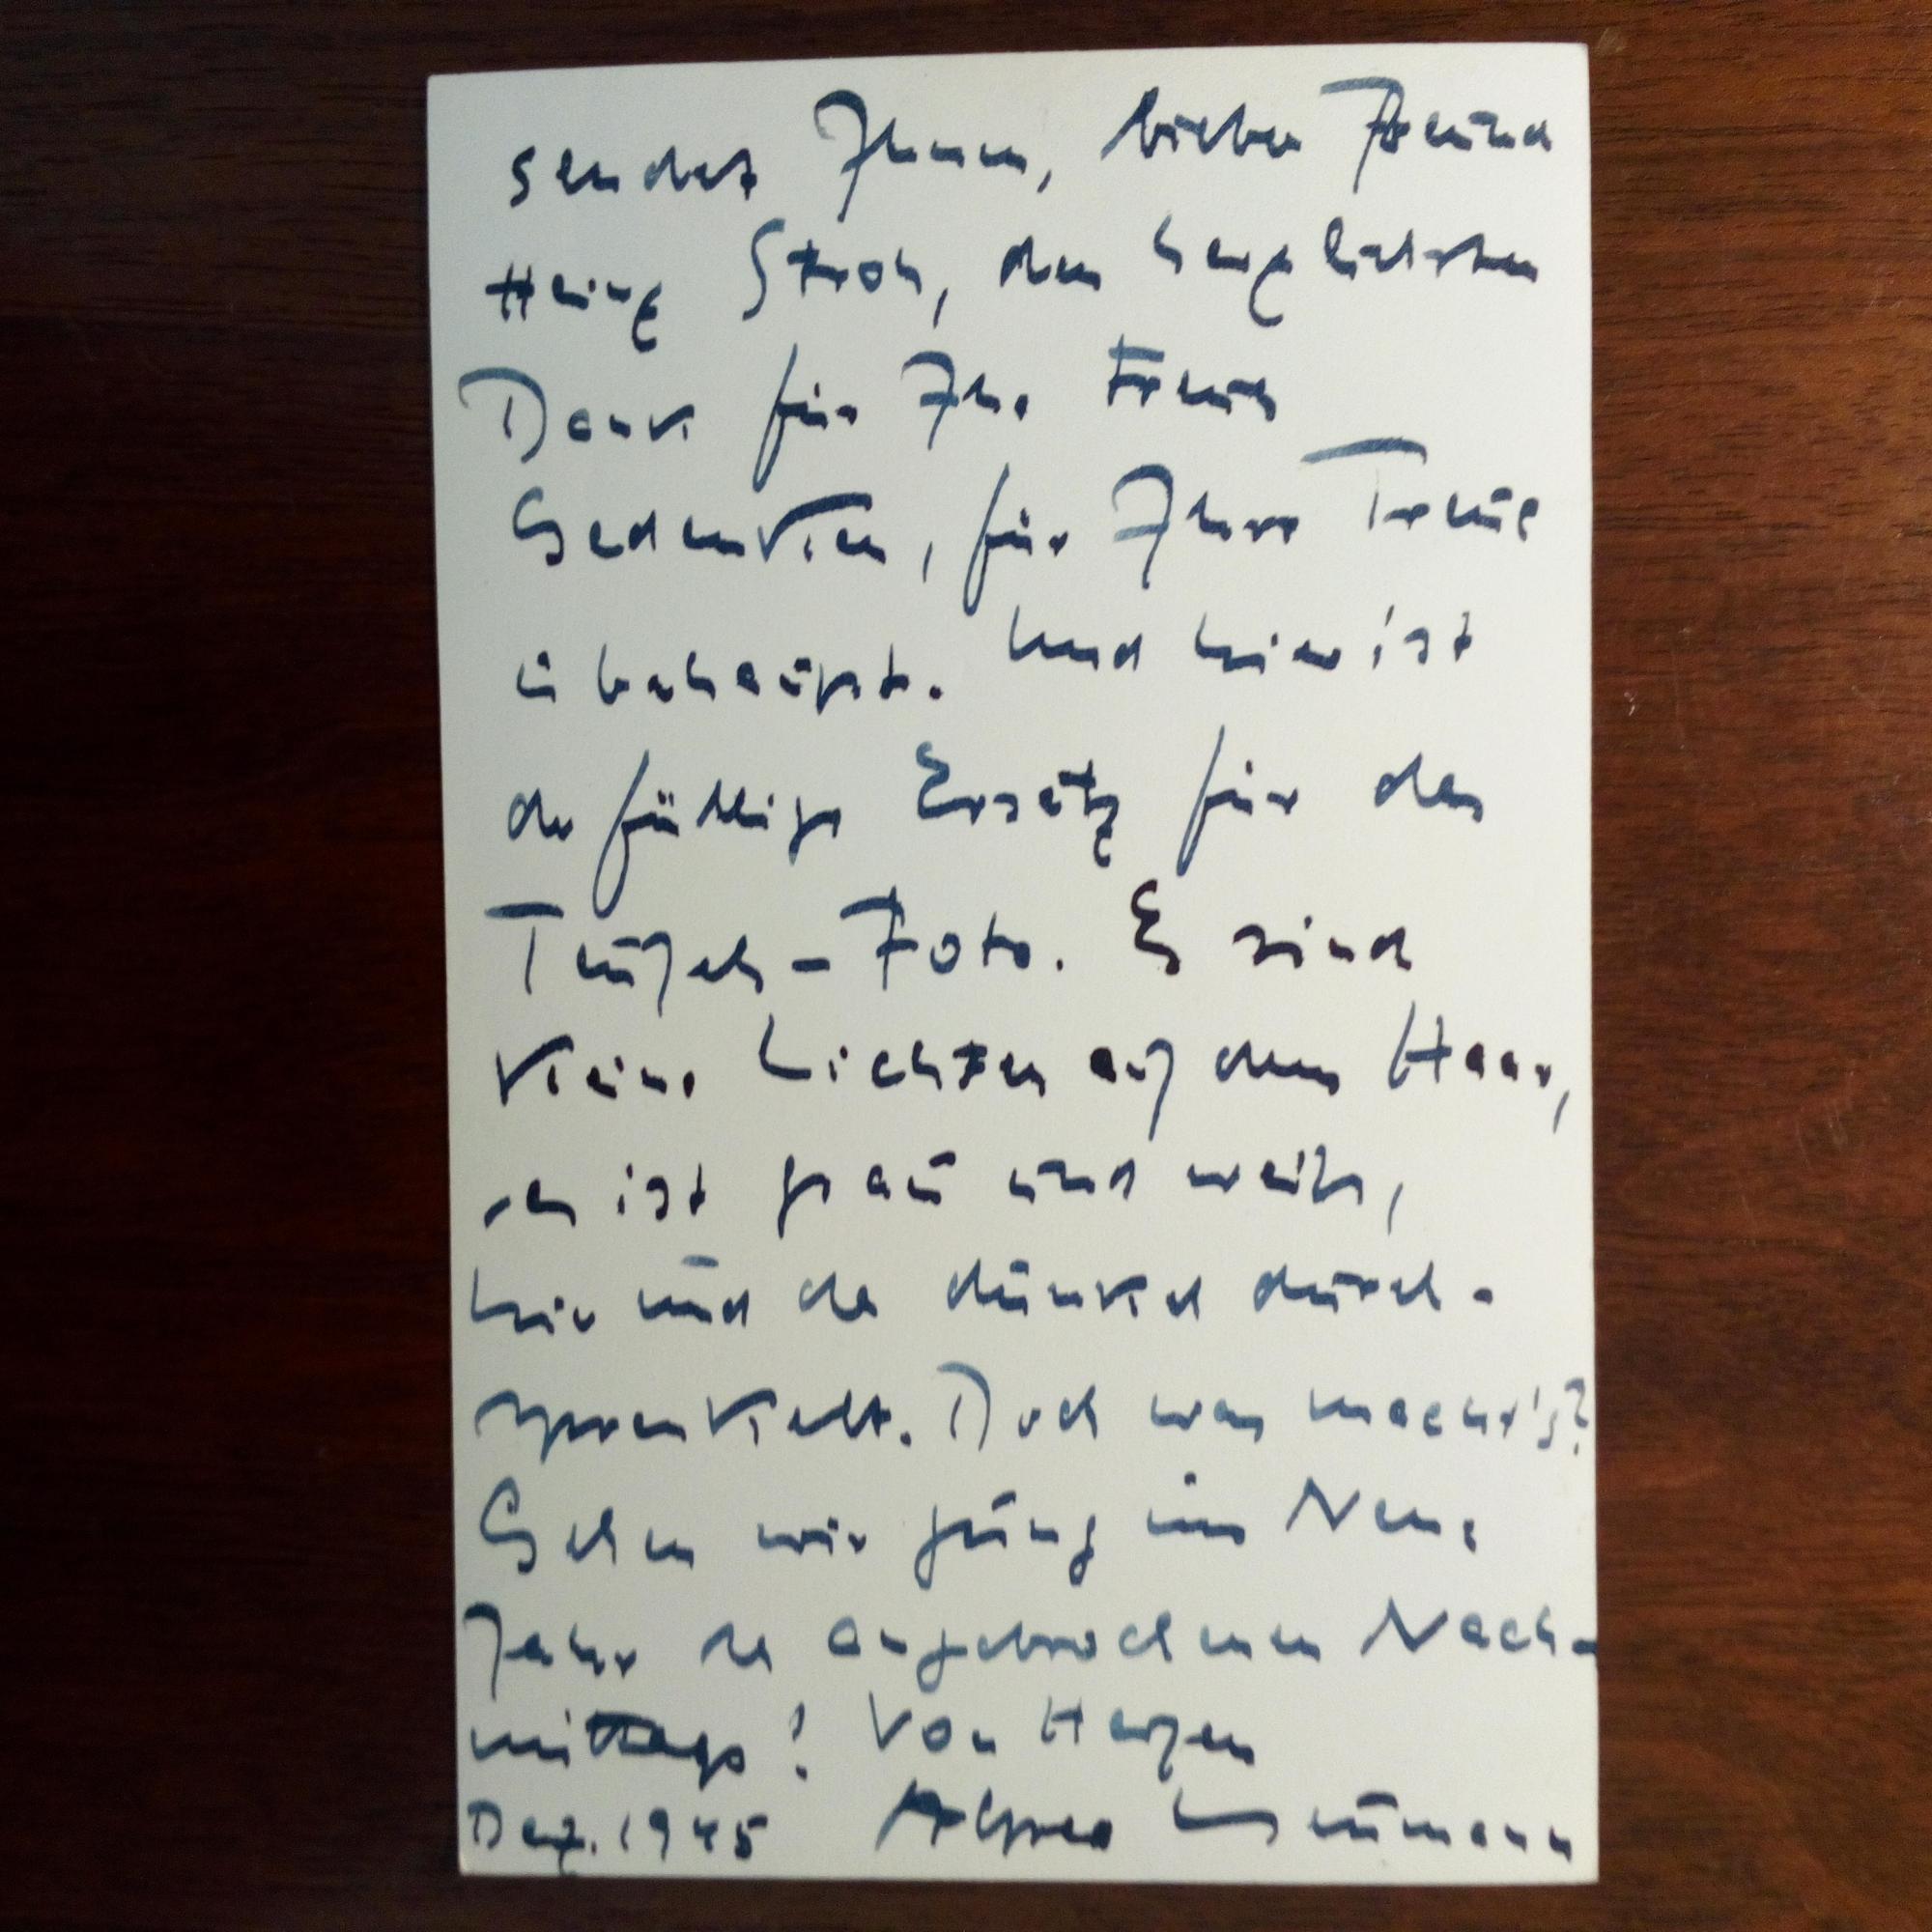 sendet Ihnen, lieber Freund
Heinz Stroh, den herzlichsten
Dank für Ihr treues
Gedenken, für Ihre Treue
überhaupt. Und hier ist
der fällige Ersatz für das
Teufels-Foto. Es sind
keine Lichter auf dem Haar,
es ist grau und weiß,
hier und da dunkel durch-
sprenkelt. Doch was macht's?
Gehen wir ins Neue
Jahr des angebrochenen Nach-
mittags! Von Herzen
Dez. 1945 Alfred Neumann